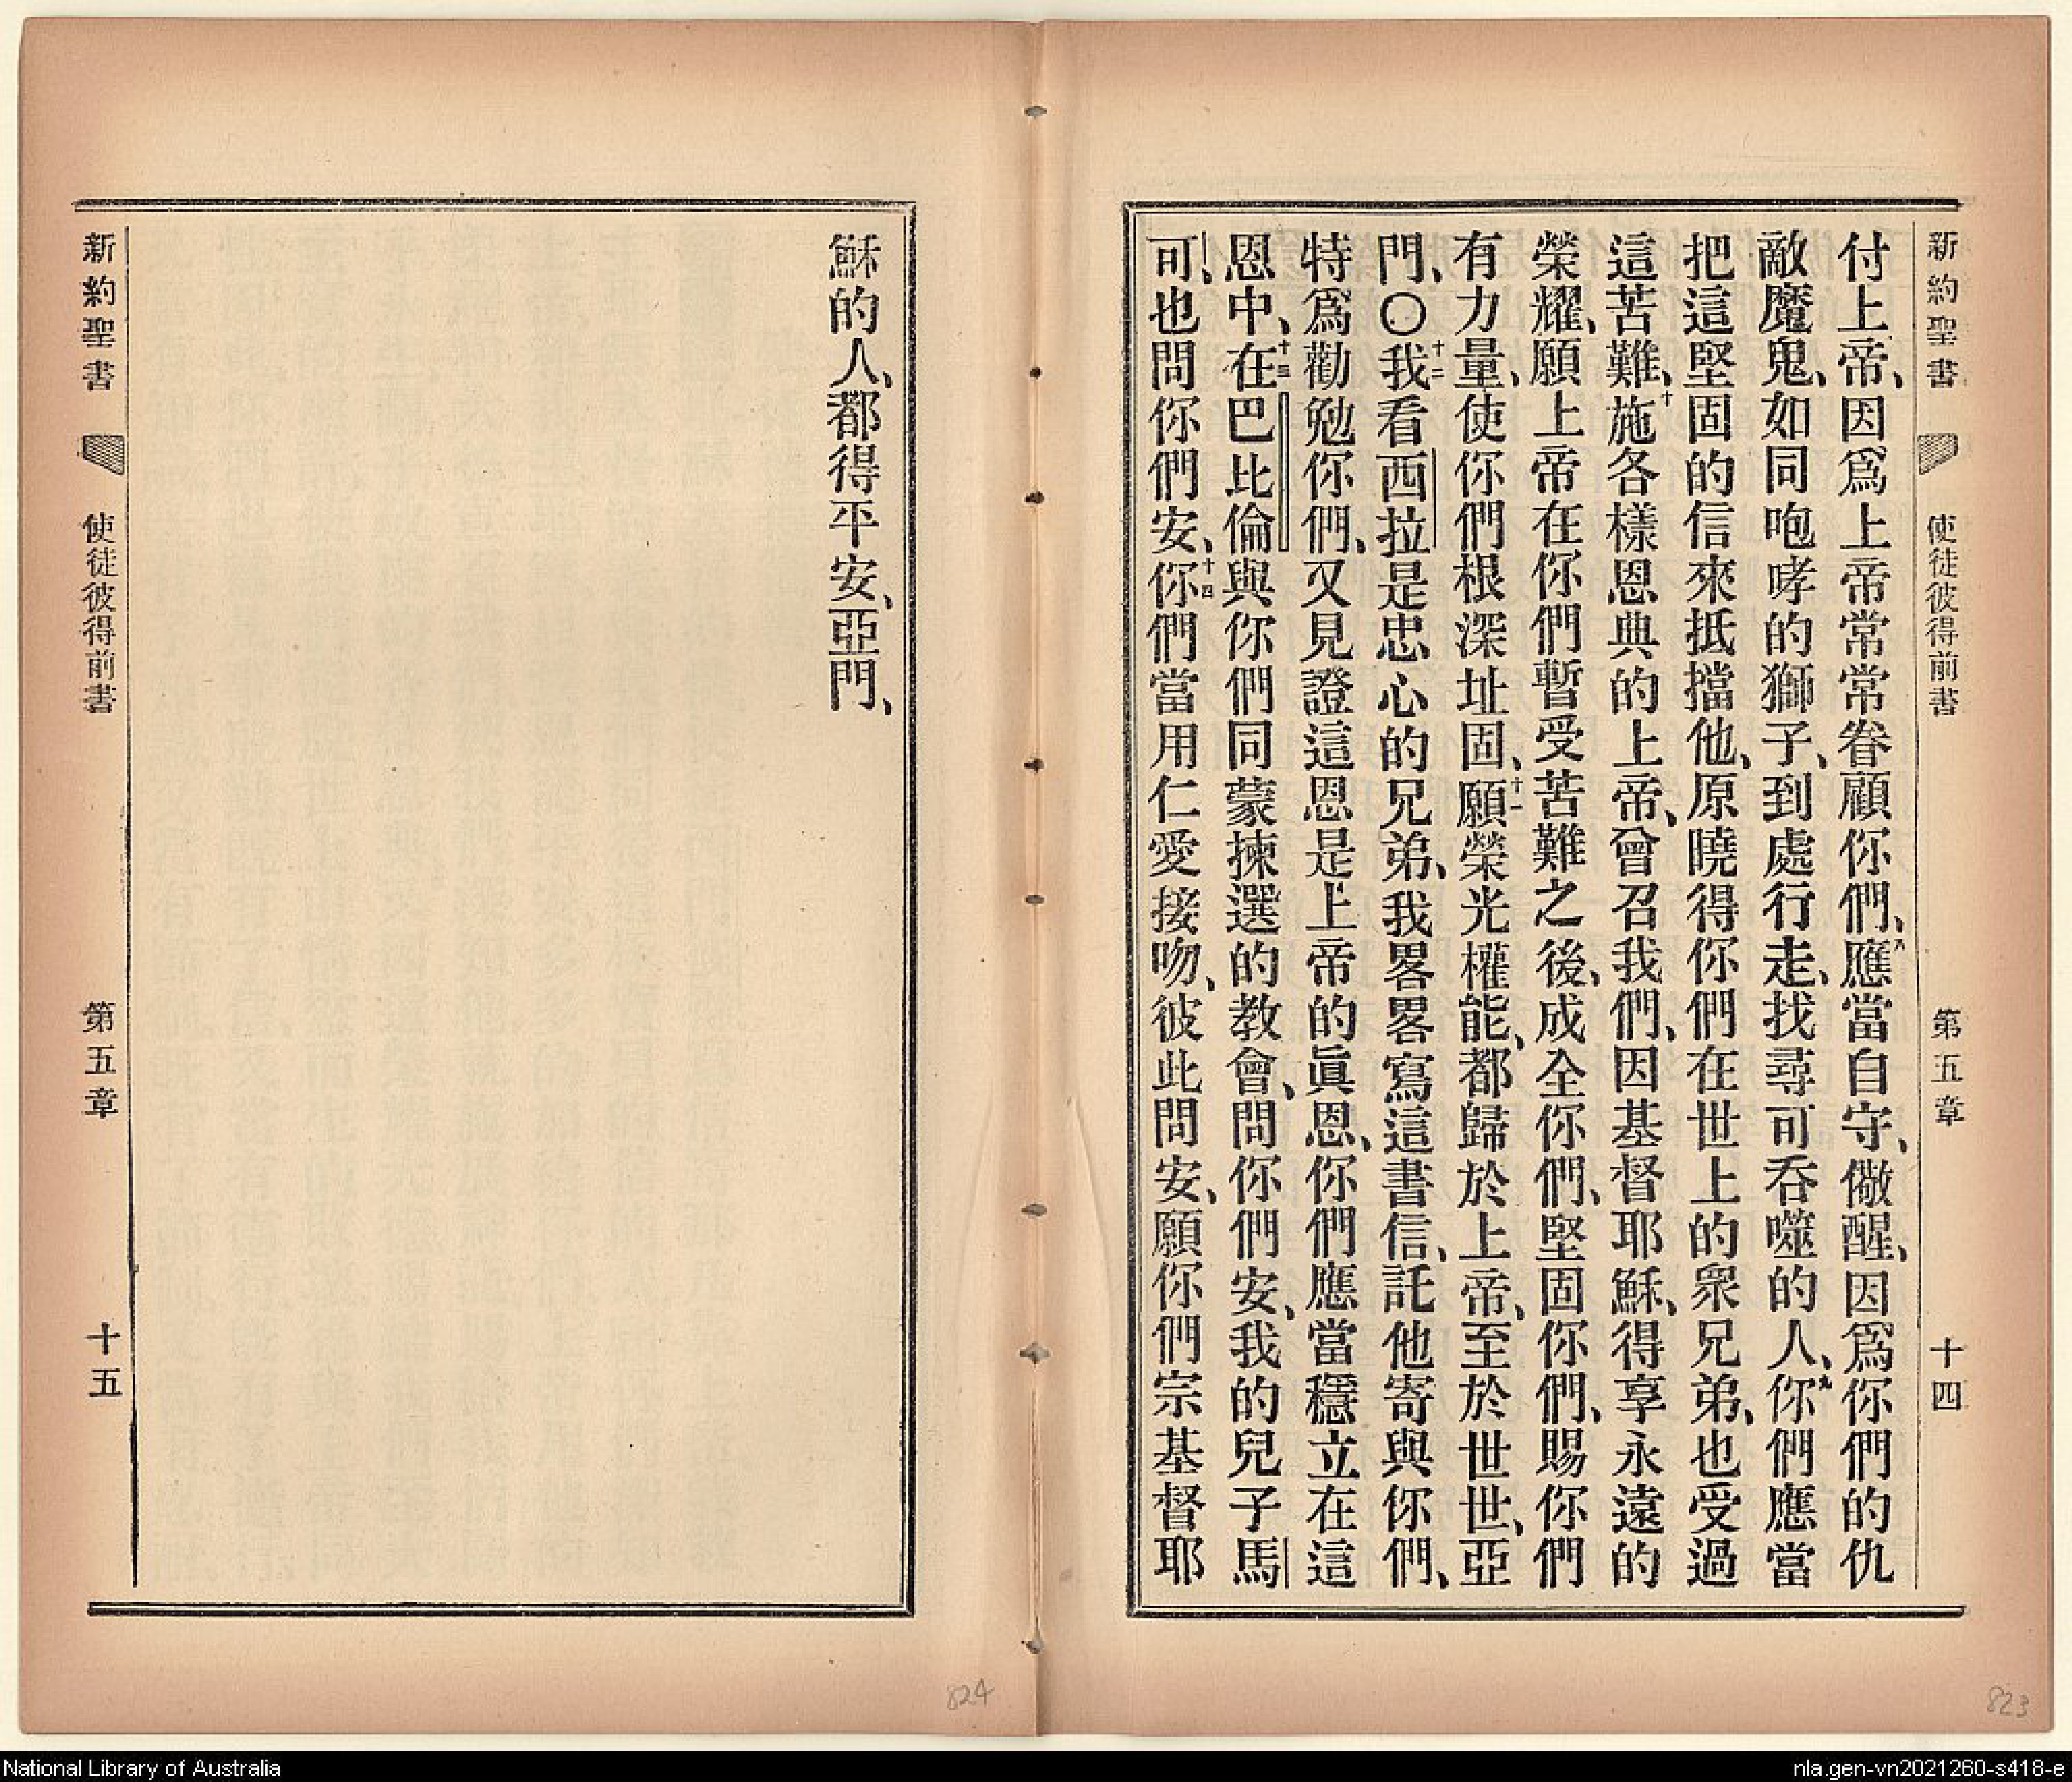 新約聖書 使徒彼得前書 第五章 十四
付上帝、因爲上帝常常眷顧你們、八應當自守、儆醒、因爲你們的仇
敵魔鬼、如同咆哮的獅子、到處行走、找尋可吞噬的人、九你們應當
把這堅固的信來抵擋他、原曉得你們在世上的衆兄弟、也受過
這苦難、十施各樣恩典的上帝、曾召我們、因基督耶穌、得享永遠的
榮耀、願上帝在你們暫受苦難之後、成全你們、堅固你們、賜你們
有力量、使你們根深址固、十一願榮光權能、都歸於上帝、至於世世、亞
門、〇十二我看西拉是忠心的兄弟、我畧畧寫這書信、託他寄與你們、
特爲勸勉你們、又見證這恩是上帝的眞恩、你們應當穩立在這
恩中、十三在巴比倫與你們同蒙揀選的教會、問你們安、我的兒子馬
可、也問你們安、十四你們當用仁愛接吻、彼此問安、願你們宗基督耶
穌的人、都得平安、亞門、
新約聖書 使徒彼得前書 第五章 十五
824
823
National Library of Australia
nla.gen-vn2021260-s418-e